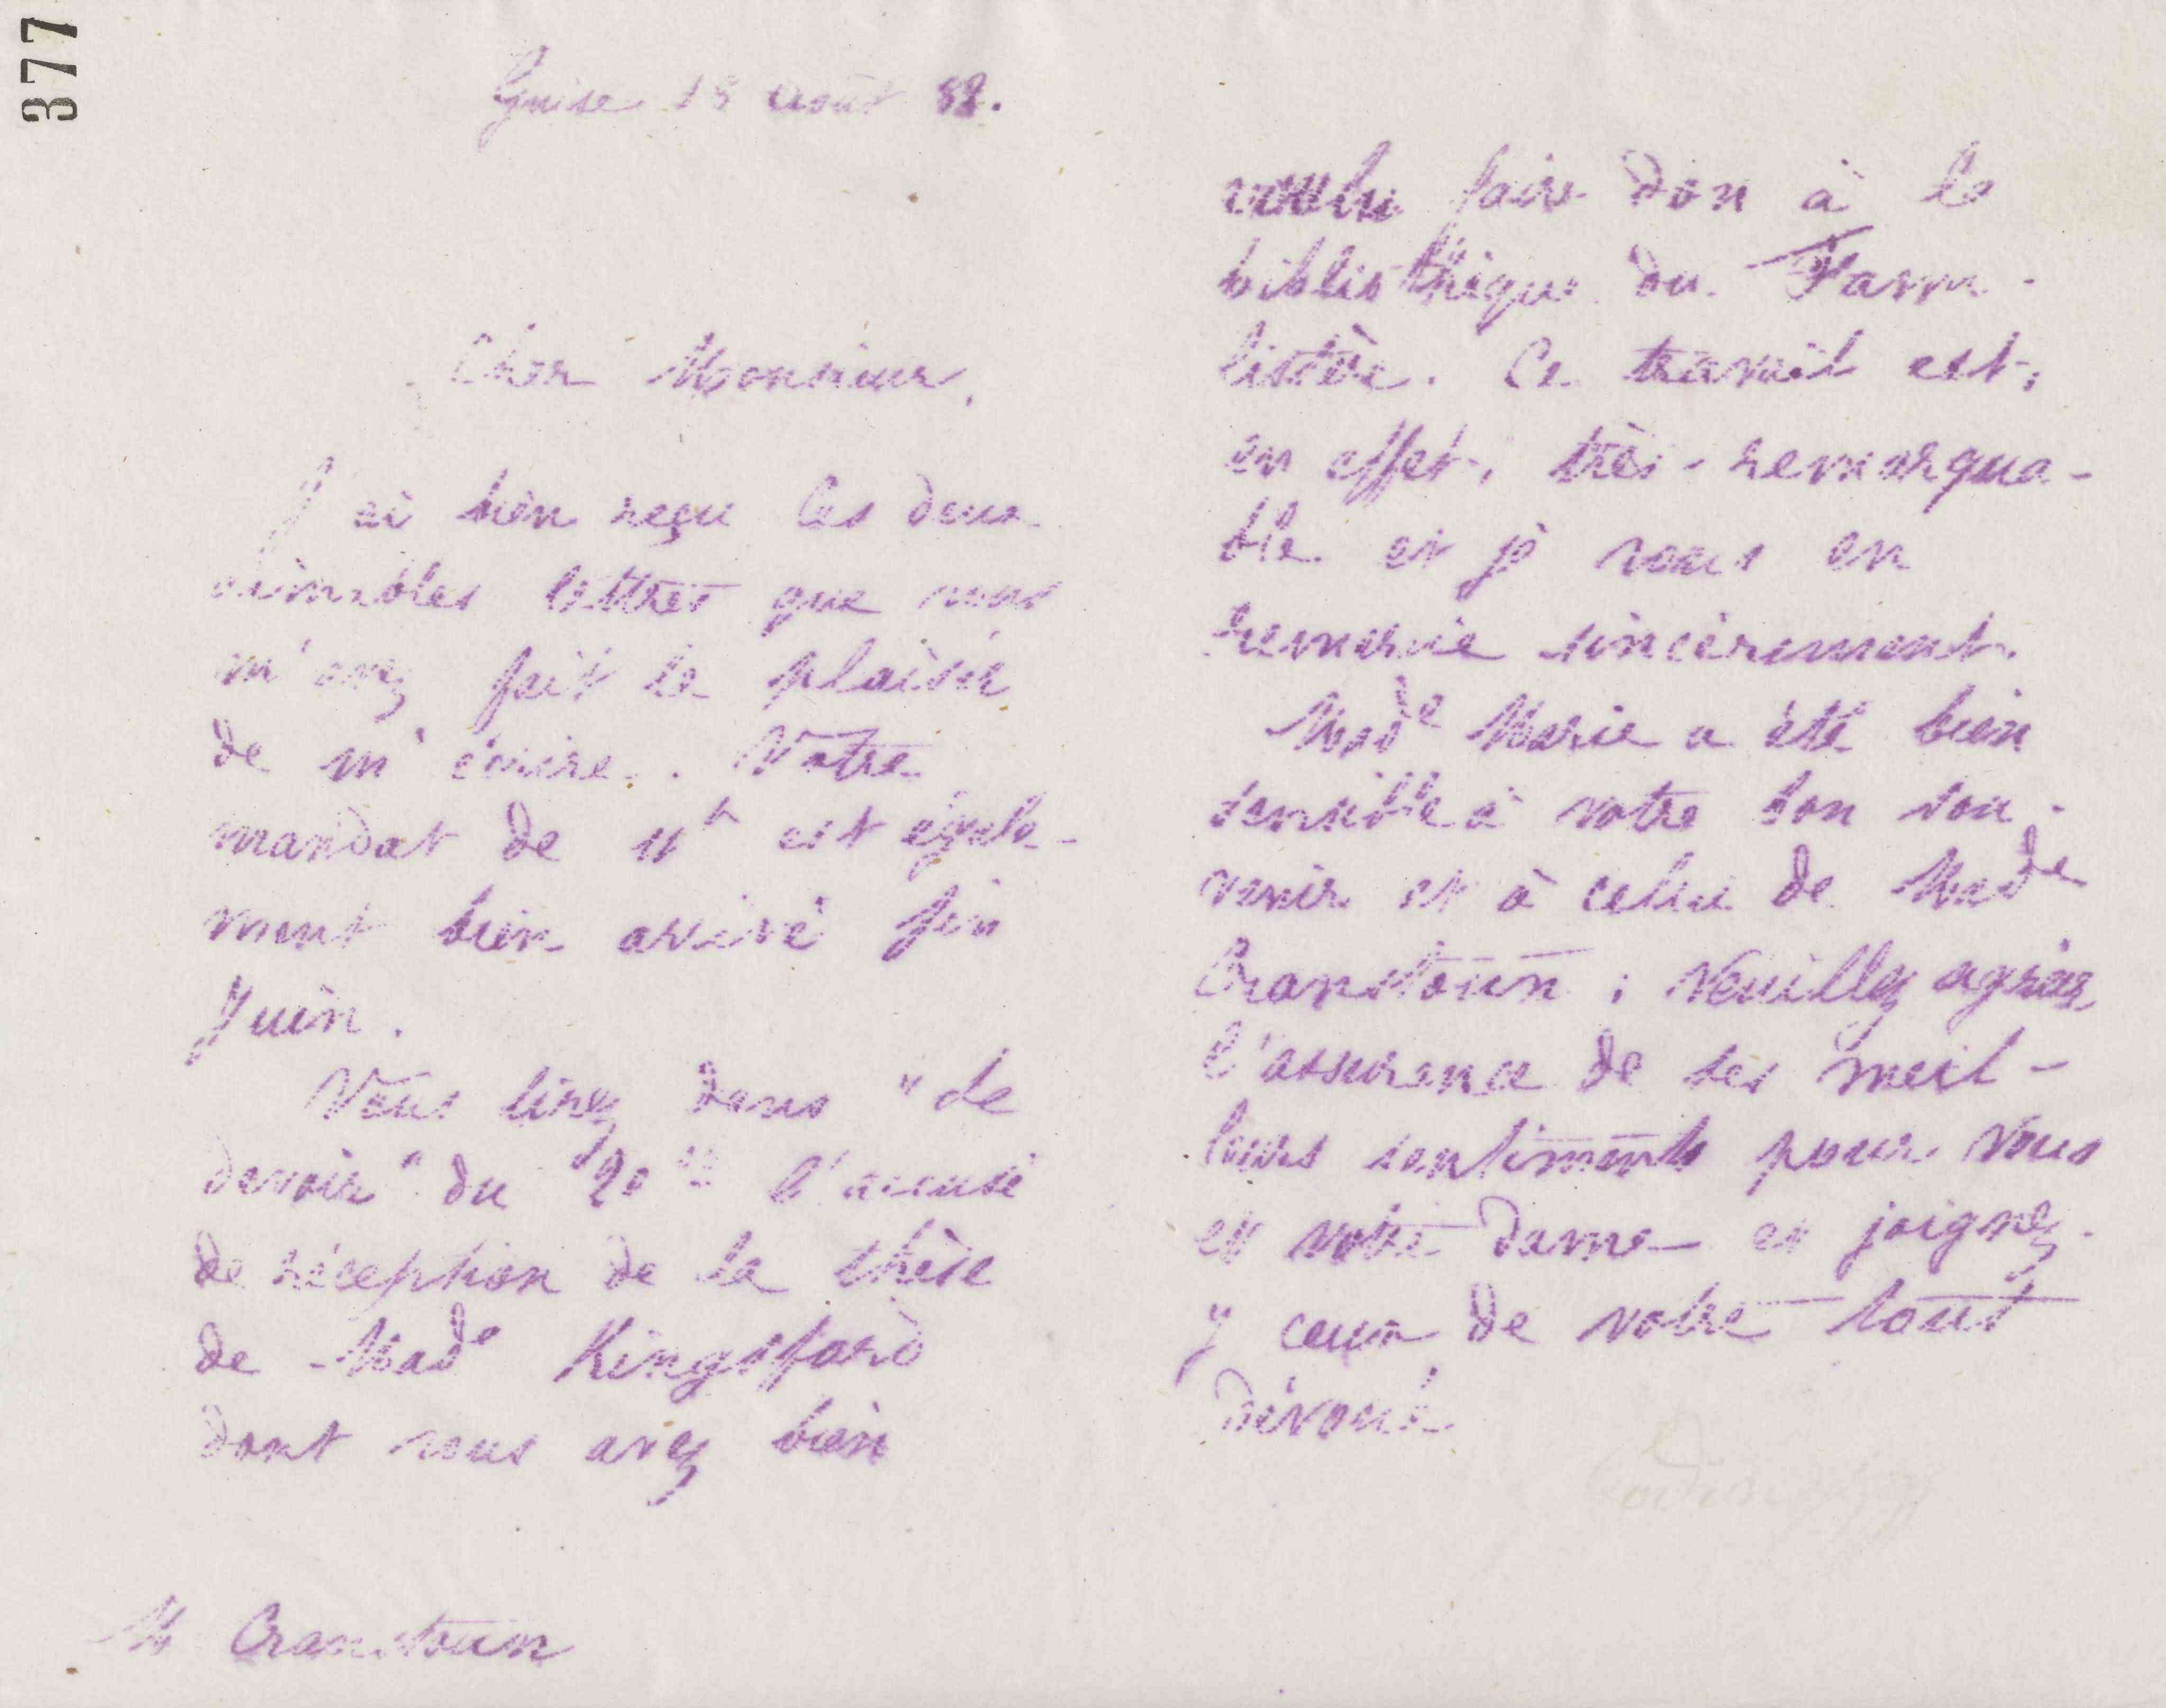 377
Guise 18 août 82.
Cher Monsieur,
J'ai bien reçu les deux
aimables lettres que vous
m'avez fait le plaisir
de m'écrire. Votre
mandat de 11f est égale-
ment bien arrivé fin
Juin.
Vous lirez dans "Le
devoir" du 20 l'accusé
de réception de la thèse
de Made Kingsford
dont vous avez bien
M Cranstoun
voulu faire don à la
bibliothèque du Fami-
listère. Ce travail est,
en effet, très-remarqua-
ble et je vous en
remercie sincèrement.
Made Marie a été bien
sensible à votre bon sou-
venir et à celui de Made
Cranstoun ; Veuillez agréer
l'assurance de ses meil-
leurs sentiments pour vous
et votre dame et joignez-
y ceux de votre tout
dévoué
Godin